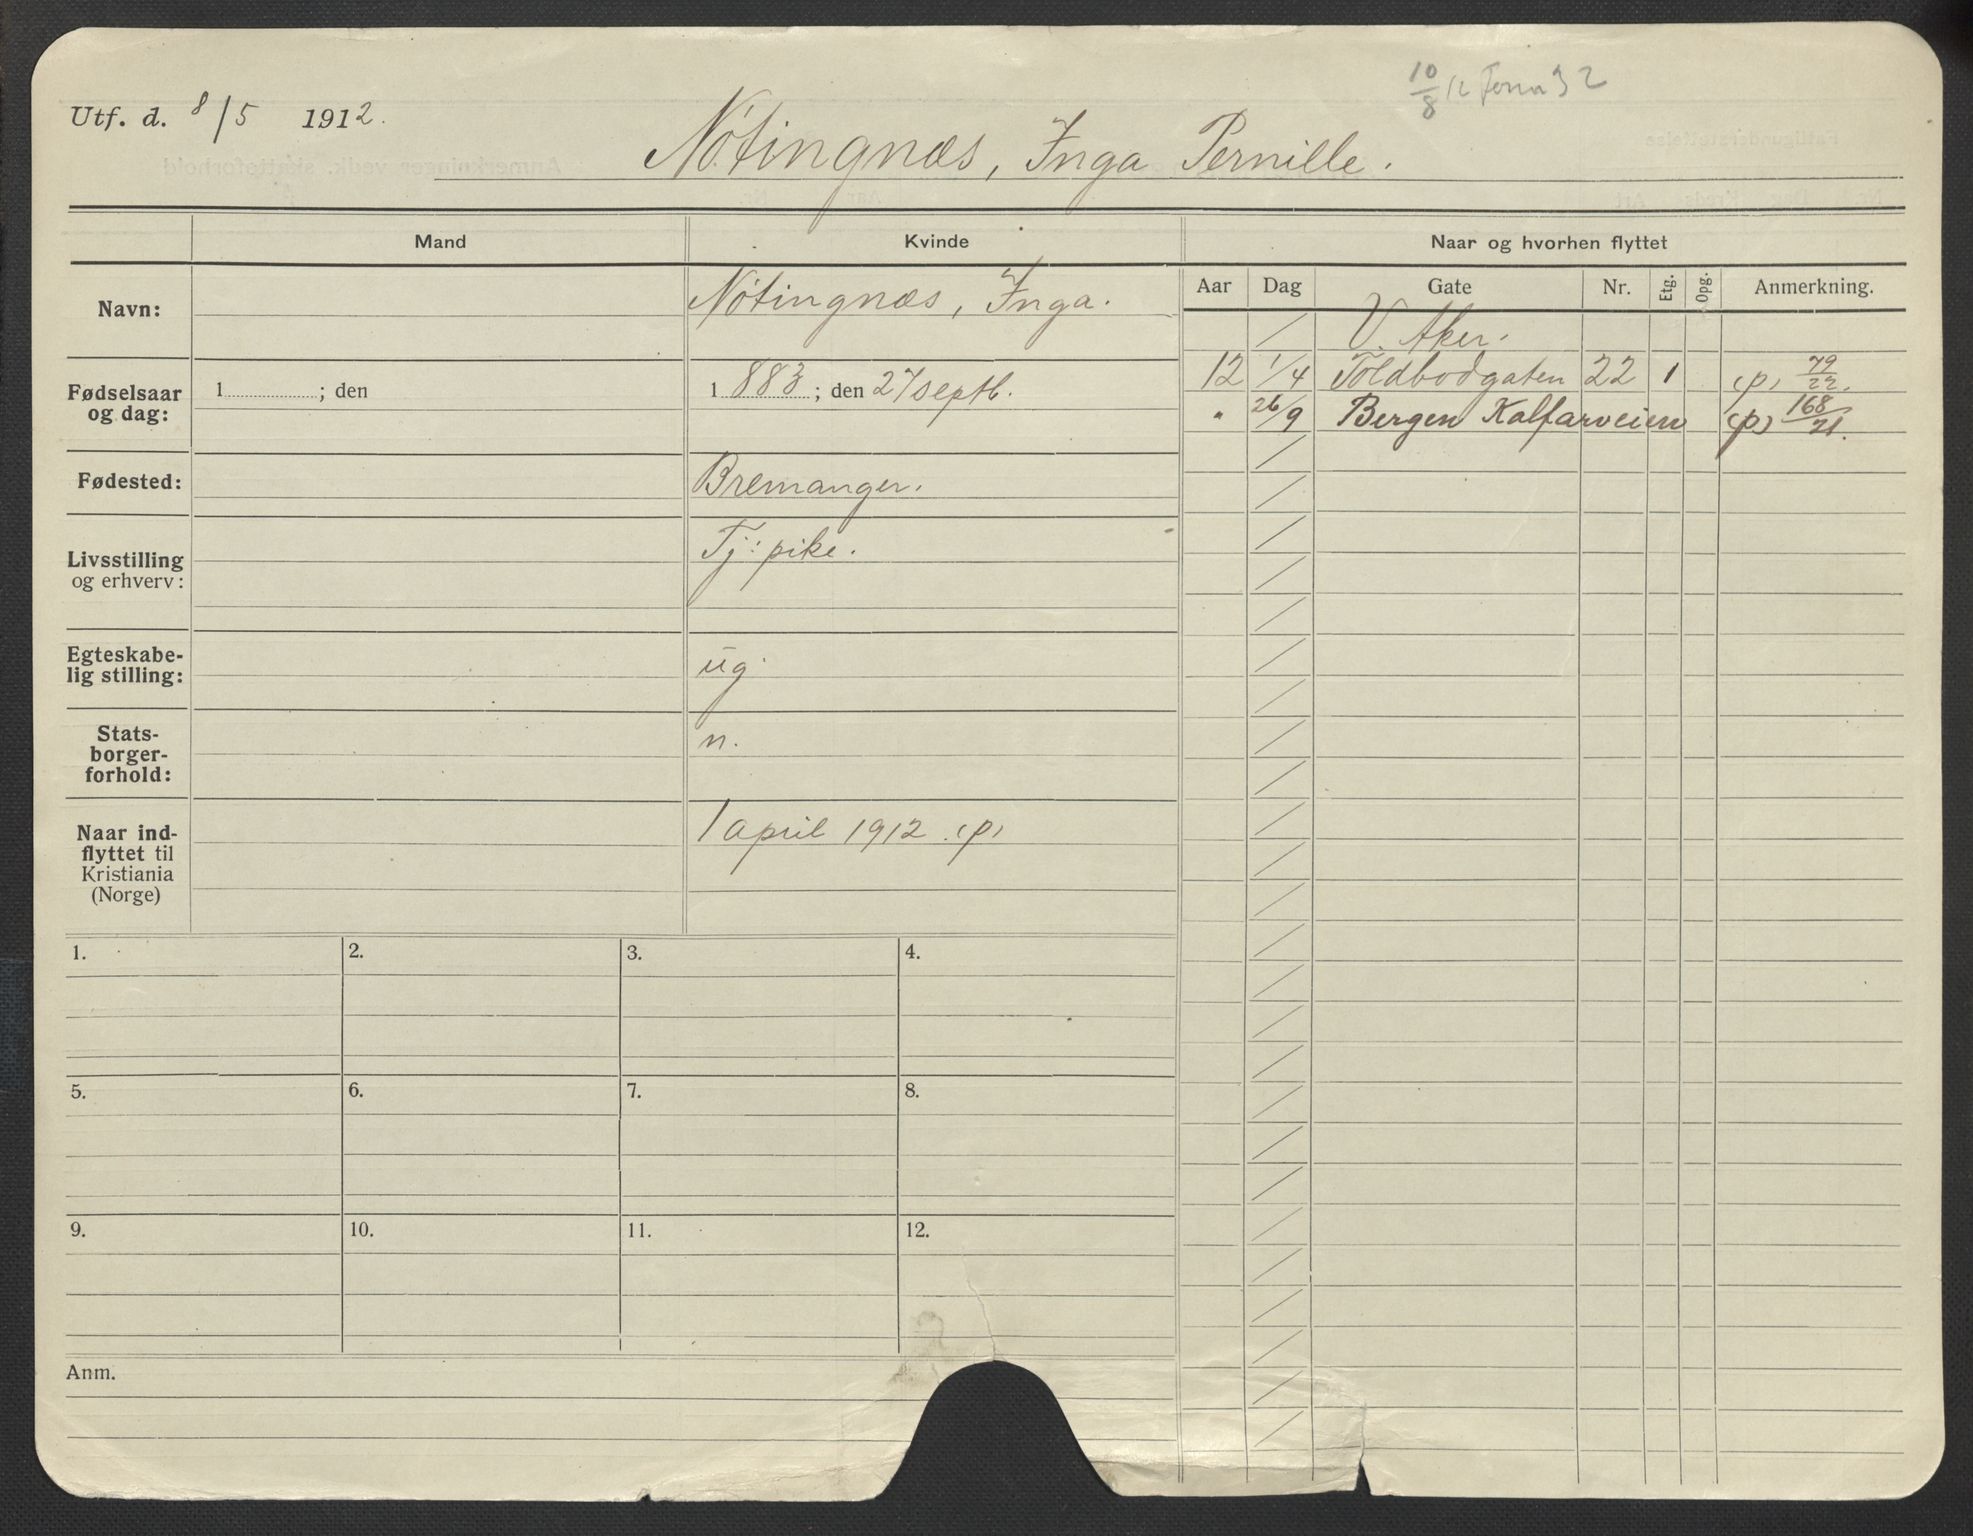 Utf. d. 8/5 1912.
10/8 12
Nötingnæs, Inga Pernille.
Mand
Kvinde
Naar og hvorhen flyttet
Aar Dag Gate Nr. Etg. Opg. Anmerkning.
Navn:
Nötingnæs, Inga.
V. Aker.
12 1/4 Toldbodgaten 22 1 (p) 79/22.
" 26/9 Bergen Kalfarveien (p) 168/21.
Fødselsaar
og dag:
1 ; den
1 883 ; den 27 septb.
Fødested:
Bremanger.
Livsstilling
og erhverv:
Tj: pike.
Egteskabe-
lig stilling:
ug.
Stats-
borger-
forhold:
n.
Naar ind-
flyttet til
Kristiania
(Norge)
1 april 1912. (p)
1. 2. 3. 4.
5. 6. 7. 8.
9. 10. 11. 12.
Anm.